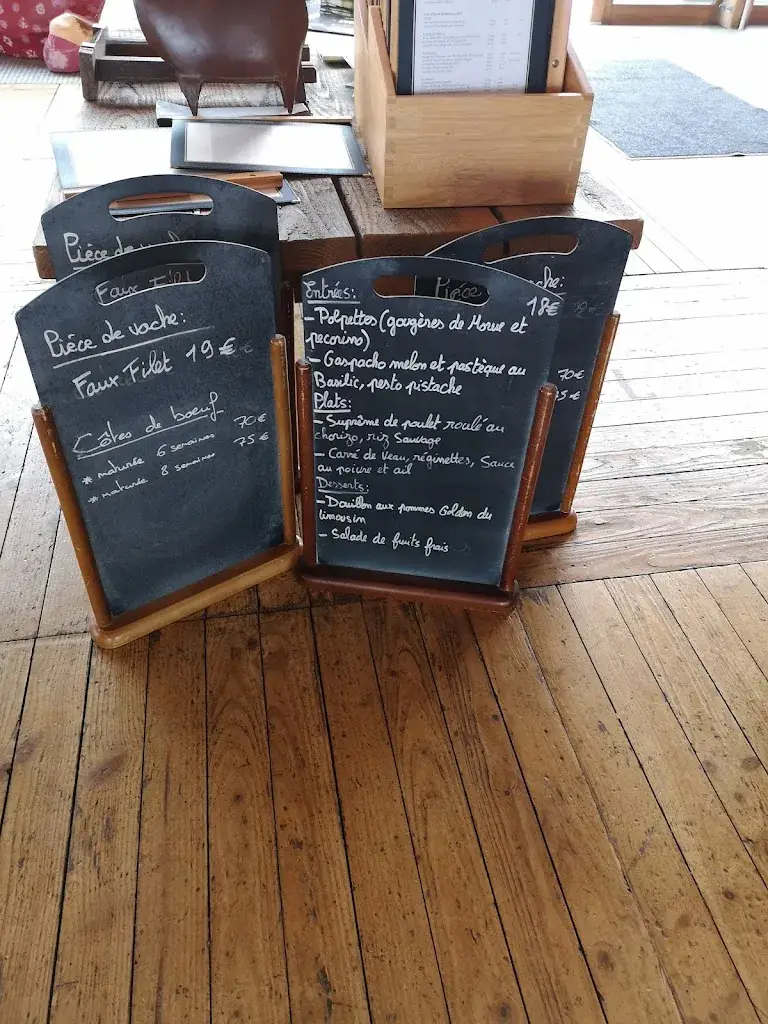 Pièce de
Faux Filet
Pièce de vache:
Faux Filet 19 €
Côtes de boeuf
* maturée 6 semaines 70€
* maturée 8 semaines 75€
Entrées: 18€
- Polpettes (gougères de Morue et
pecorino)
- Gaspacho melon et pastèque au
Basilic, pesto pistache
Plats:
- Suprême de poulet roulé au
chorizo, riz Sauvage
- Carré de Veau, réginettes, Sauce
au poivre et ail
Desserts:
- Douillon aux pommes Golden du
limousin
- Salade de fruits frais
Pièce
che:
70€
5€